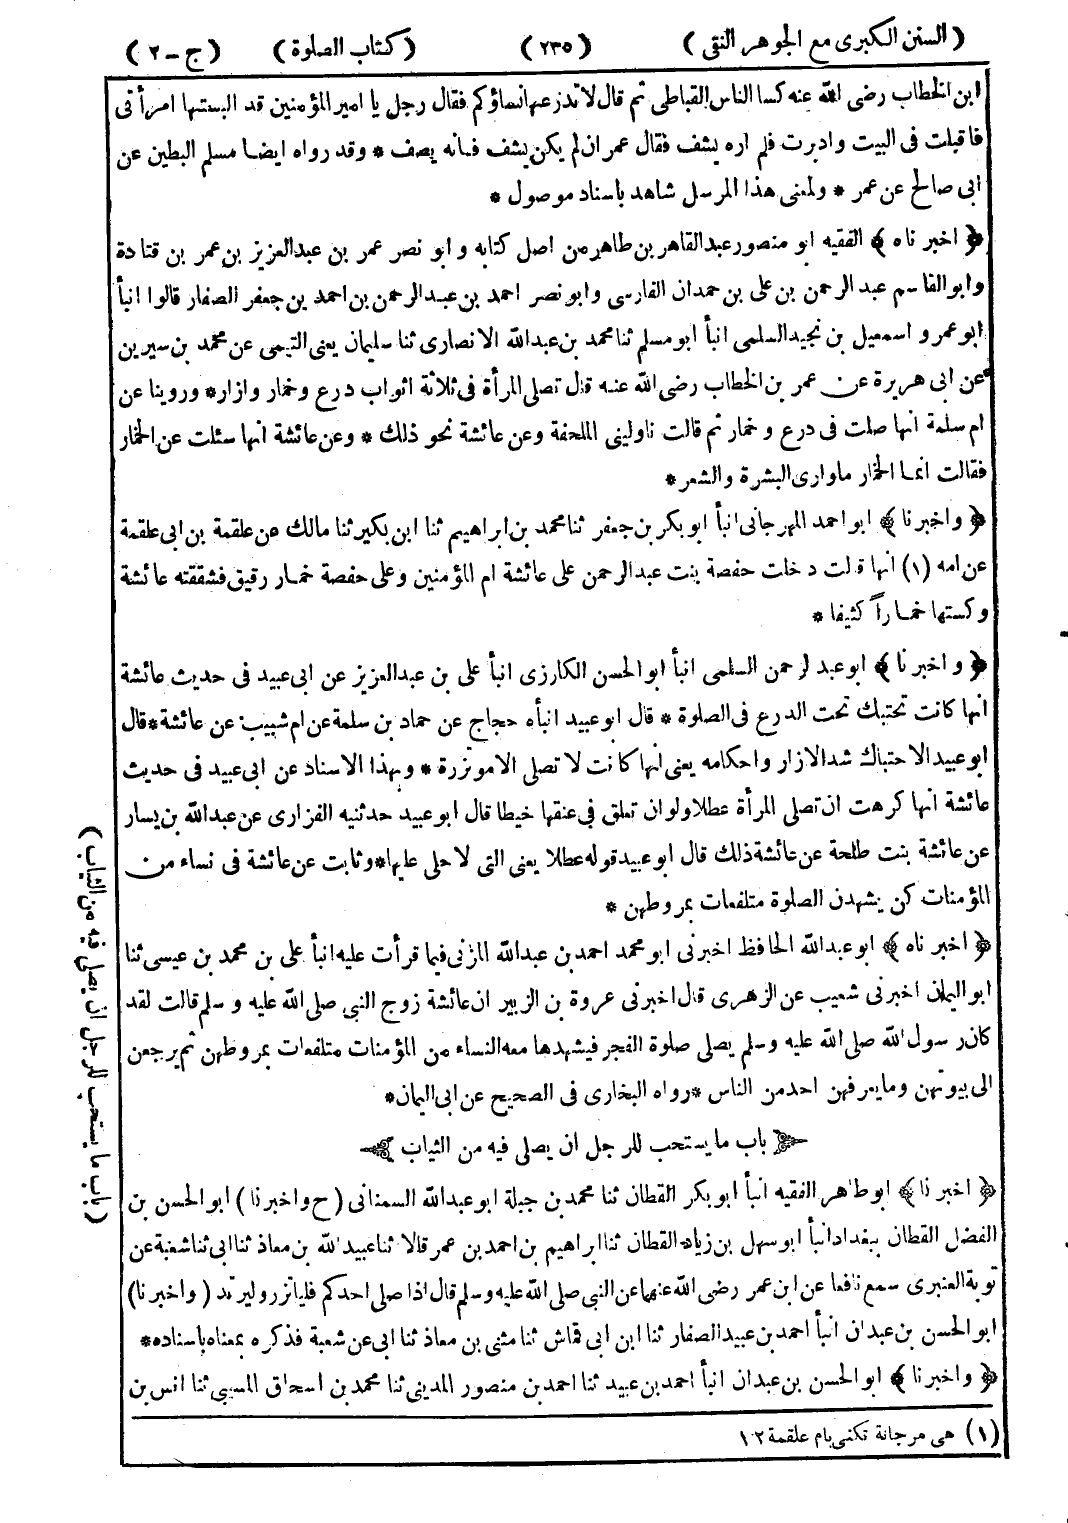 ( السنن الكبرى مع الجوهر النقى ) ( ٢٣٥ ) ( كتاب الصلوة ) ( ج - ٢ )
ابن الخطاب رضى الله عنه كسا الناس القباطى ثم قال لا تدرعها نساؤكم فقال رجل يا امير المؤمنين قد البستها امرأتى
فاقبلت فى البيت وادبرت فلم اره يشف فقال عمر ان لم يكن يشف فانه يصف * وقد رواه ايضا مسلم البطين عن
ابى صالح عن عمر * ولمعنى هذا المرسل شاهد باسناد موصول *
﴿ اخبرناه ﴾ الفقيه ابو منصور عبد القاهر بن طاهر من اصل كتابه و ابو نصر عمر بن عبد العزيز بن عمر بن قتادة
وابو القاسم عبد الرحمن بن على بن حمدان الفارسى وابو نصر احمد بن عبد الرحمن بن احمد بن جعفر الصفار قالوا انبأ
ابو عمرو اسمعيل بن نجيد السلمى انبأ ابو مسلم ثنا محمد بن عبد الله الانصارى ثنا سليمان يعنى التيمى عن محمد بن سيرين
عن ابى هريرة عن عمر بن الخطاب رضى الله عنه قال تصلى المرأة فى ثلاثة اثواب درع وخمار وازار * وروينا عن
ام سلمة انها صلت فى درع و خمار ثم قالت ناولينى الملحفة وعن عائشة نحو ذلك * وعن عائشة انها سئلت عن الخمار
فقالت انما الخمار ما وارى البشرة والشعر *
﴿ واخبرنا ﴾ ابو احمد المهرجانى انبأ ابو بكر بن جعفر ثنا محمد بن ابراهيم ثنا ابن بكير ثنا مالك عن علقمة بن ابى علقمة
عن امه (١) انها قالت دخلت حفصة بنت عبد الرحمن على عائشة ام المؤمنين وعلى حفصة خمار رقيق فشققته عائشة
وكستها خماراً كثيفا *
﴿ و اخبرنا ﴾ ابو عبد الرحمن السلمى انبأ ابو الحسن الكارزى انبأ على بن عبد العزيز عن ابى عبيد فى حديث عائشة
انها كانت تحتبك تحت الدرع فى الصلوة * قال ابو عبيد انبأه حجاج عن حماد بن سلمة عن ام شبيب عن عائشة * قال
ابو عبيد الاحتباك شد الازار واحكامه يعنى انها كانت لا تصلى الا مؤتزرة * وبهذا الاسناد عن ابى عبيد فى حديث
عائشة انها كرهت ان تصلى المرأة عطلا ولو ان تعلق فى عنقها خيطا قال ابو عبيد حدثنيه الفزارى عن عبد الله بن يسار
عن عائشة بنت طلحة عن عائشة ذلك قال ابو عبيد قوله عطلا يعنى التى لا حلى عليها * وثابت عن عائشة فى نساء من
المؤمنات كن يشهدن الصلوة متلفعات بمروطهن *
﴿ اخبرناه ﴾ ابو عبد الله الحافظ اخبرنى ابو محمد احمد بن عبد الله المزنى فيما قرأت عليه انبأ على بن محمد بن عيسى ثنا
ابو اليمان اخبرنى شعيب عن الزهرى قال اخبرنى عروة بن الزبير ان عائشة زوج النبى صلى الله عليه و سلم قالت لقد
كان رسول الله صلى الله عليه وسلم يصلى صلوة الفجر فيشهدها معه النساء من المؤمنات متلفعات بمروطهن ثم يرجعن
الى بيوتهن وما يعرفهن احد من الناس * رواه البخارى فى الصحيح عن ابى اليمان *
باب ما يستحب للرجل ان يصلى فيه من الثياب
﴿ اخبرنا ﴾ ابو طاهر الفقيه انبأ ابو بكر القطان ثنا محمد بن جبلة ابو عبد الله السمنانى ( ح واخبرنا ) ابو الحسن بن
الفضل القطان ببغداد انبأ ابو سهل بن زياد القطان ثنا ابراهيم بن احمد بن عمر قالا ثنا عبيد الله بن معاذ ثنا ابى ثنا شعبة عن
توبة العنبرى سمع نافعا عن ابن عمر رضى الله عنهما عن النبى صلى الله عليه وسلم قال اذا صلى احدكم فليأتزر وليرتد ( واخبرنا )
ابو الحسن بن عبدان انبأ احمد بن عبيد الصفار ثنا ابن ابى قماش ثنا مثنى بن معاذ ثنا ابى عن شعبة فذكره بمعناه باسناده *
﴿ واخبرنا ﴾ ابو الحسن بن عبدان انبأ احمد بن عبيد ثنا احمد بن منصور المدينى ثنا محمد بن اسحاق المسيبى ثنا انس بن
(١) هى مرجانة تكنى بام علقمة ١٢
( باب ما يستحب للرجل ان يصلى فيه من الثياب )